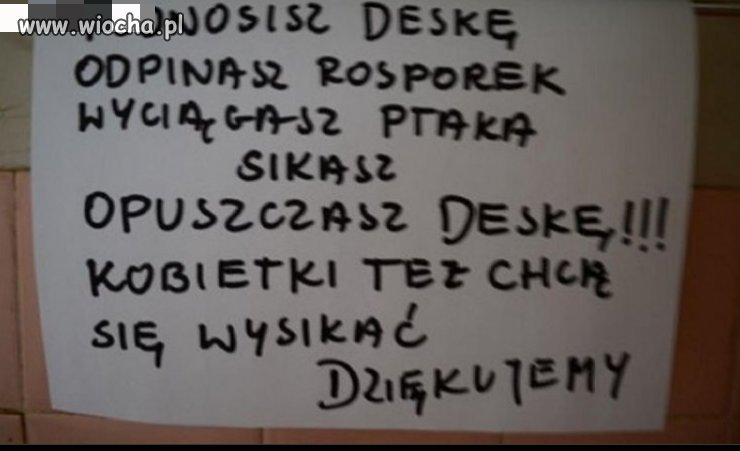 www.wiocha.pl
DESKĘ
ODPINASZ ROSPOREK
WYCIĄGASZ PTAKA
SIKASZ
OPUSZCZASZ DESKĘ!!!
KOBIETKI TEŻ CHCĄ
SIĘ WYSIKAĆ
DZIĘKUJEMY